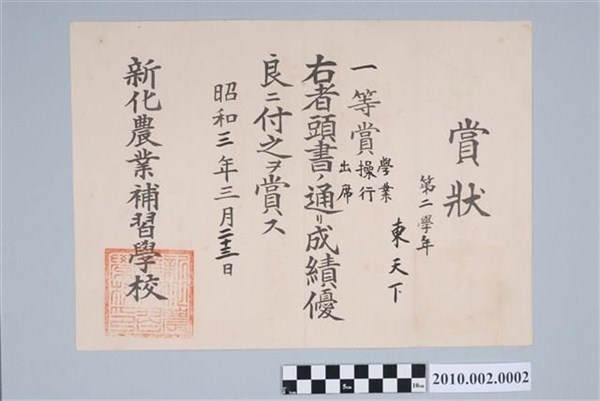 賞狀
第二學年
東天下
一等賞
學業
操行
出席
右者頭書ノ通リ成績優
良ニ付之ヲ賞ス
昭和三年三月二十三日
新化農業補習學校
5cm
10cm
2010.002.0002